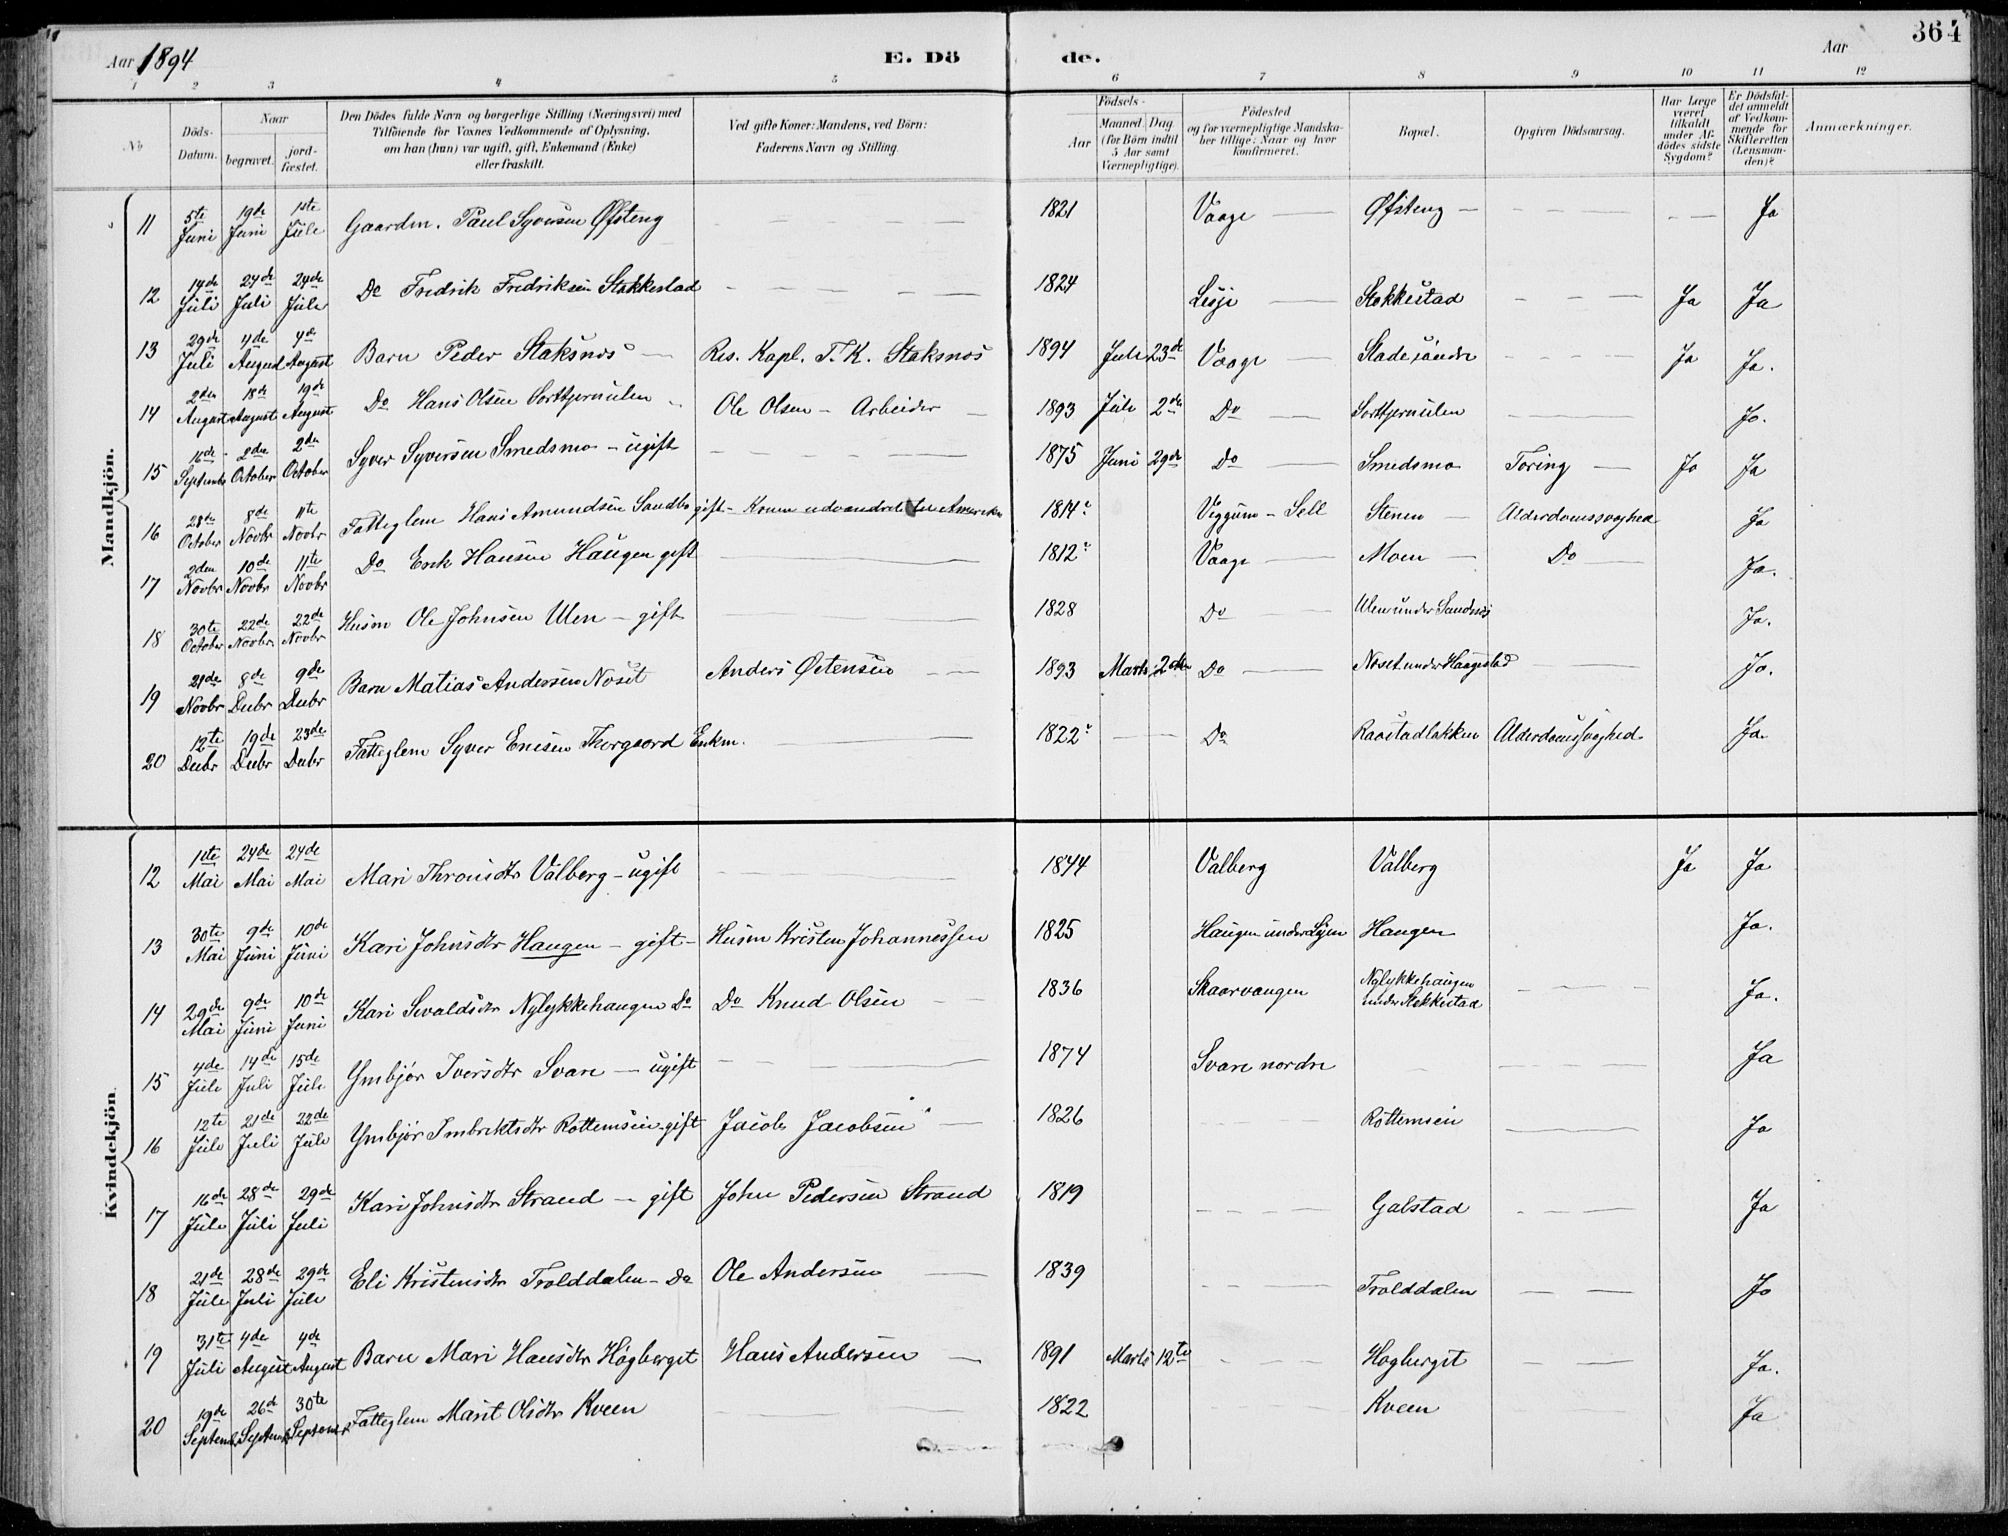 364
Aar 1894 E. Döde. Aar
1 2 3 4 5 6 7 8 9 10 11 12
No
Döds-Datum.
Naar begravet. jordfæstet.
Den Dödes fulde Navn og borgerlige Stilling (Næringsvei) med Tilföiende for Voxnes Vedkommende af Oplysning, om han (hun) var ugift, gift, Enkemand (Enke) eller fraskilt.
Ved gifte Koner: Mandens, ved Börn: Faderens Navn og Stilling.
Födsels- Aar Maaned. Dag (for Börn indtil 5 Aar samt Værnepligtige).
Födested og for værnepligtige Mandskaber tillige: Naar og hvor konfirmeret.
Bopæl.
Opgiven Dödsaarsag.
Har Læge været tilkaldt under Afdödes sidste Sygdom?
Er Dödsfaldet anmeldt af Vedkommende for Skifteretten (Lensmanden)?
Anmærkninger.
Mandkjön.
11 5te Juni 19de Juni 1ste Juli Gaardm. Paul Syversen Øfsteng 1821 Vaage Øfsteng Ja
12 14de Juli 24de Juli 24de Juli Do Fredrik Fredriksen Stokkestad 1824 Lesje Stokkestad Ja Ja
13 29de Juli 4de August 4de August Barn Peder Staksnes Res. Kapl. T. K. Staksnes 1894 Juli 23de Vaage Ja Ja.
14 2den August 18de August 19de August Do Hans Olsen Sorttjernslien Ole Olsen - Arbeider 1893 Juli 2den Do Sorttjernslien Ja.
15 16de September 2den October 2den October Syver Syversen Smedsmo - ugift 1875 Juni 29de Do Smedsmo Tæring Ja Ja
16 28de October 8de Novbr 11te Novbr Fatteglem Hans Amundsen Sandbo gift - Konen udvandret til Amerika 1814 Veggum - Sell Stenen Alderdomssvaghed Ja
17 2den Novbr 10de Novbr 11te Novbr Do Erik Hansen Haugen gift 1812 Vaage Moen Do Ja.
18 30te October 22de Novbr. 22de Novbr Husm Ole Johnsen Ulen - gift 1828 Do Ulen under Sandnes Ja.
19 21de Novbr 8de Decbr 9de Decbr Barn Matias Andersen Noset Anders Østensen 1893 Marts 2den Do Noset under Haagestad Ja.
20 12te Decbr 19de Decbr 23de Decbr Fatteglem Syver Enkm. 1822 Do Raastadløkken Alderdomssvaghed Ja.
Kvindekjön.
12 1ste Mai 24de Mai 24de Mai Mari Thronsdtr Valberg - ugift 1844 Valberg Valberg Ja Ja
13 30te Mai 9de Juni 10de Juni Kari Johnsdtr Haugen - gift - Husm Kristen Johannessen 1825 Haugen under Haugen Ja.
14 29de Mai 9de Juni 10de Juni Kari Sevaldsdtr Nylykkehaugen Do Do Knud Olsen 1836 Skaarvangen Nylykkehaugen under Stokkestad Ja.
15 4de Juli 14de Juli 15de Juli Ymbjør Iversdtr Svare - ugift 1874 Svare nordre Ja
16 12te Juli 21de Juli 22de Juli Ymbjør Imbrektsdtr Rottemsien gift Jacob Jacobsen 1826 Rottemsien Ja
17 16de Juli 28de Juli 29de Juli Kari Johnsdtr Strand - gift John Pedersen Strand 1819 Galstad Ja
18 21de Juli 28de Juli 29de Juli Eli Kristensdtr Trolddalen - Do Ole Andersen 1839 Trolddalen Ja
19 31te Juli 4de August 4de August Barn Mari Hansdtr Høgberget Hans Andersen 1891 Marts 12te Høgberget Ja.
20 19de September 26de September 30te September Fatteglem Marit Olsdtr Kveen 1822 Kveen Ja